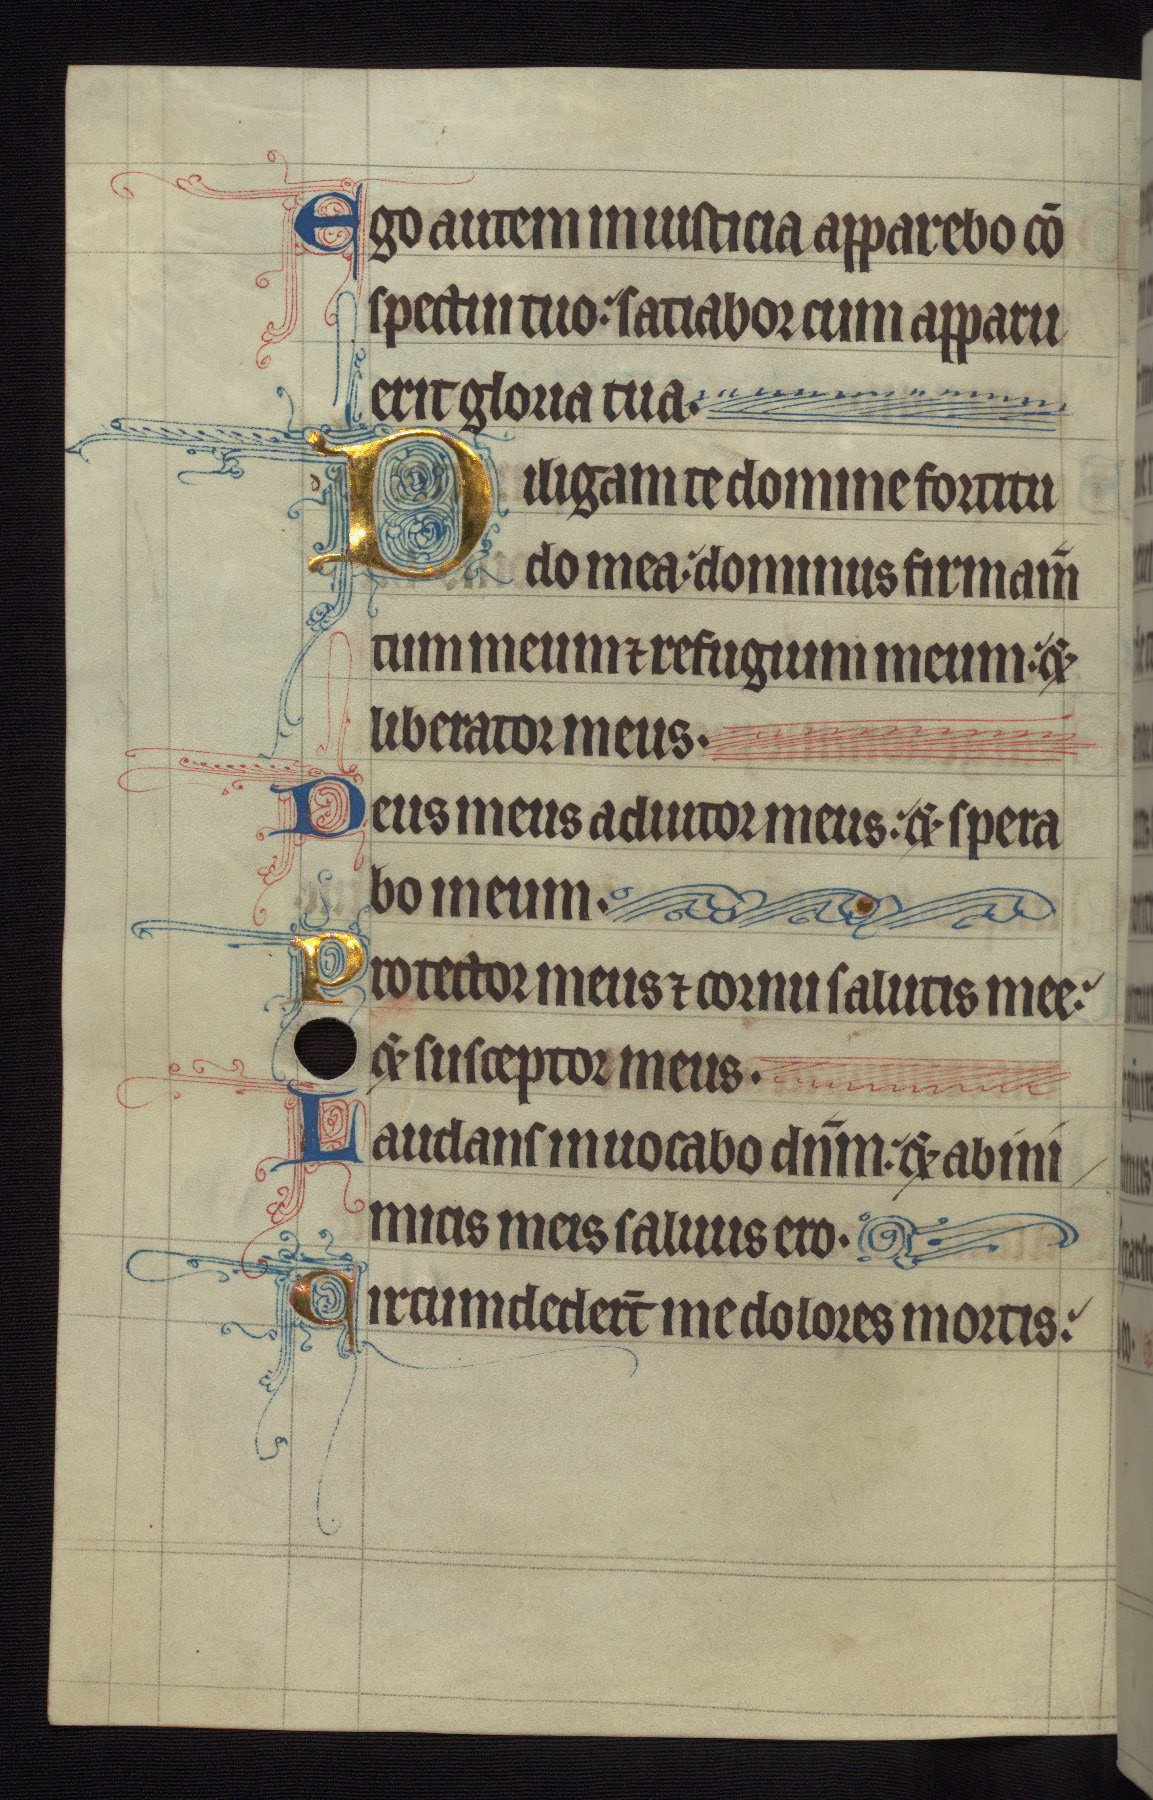 Ego autem in iusticia apparebo cō
spectui tuo: satiabor cum apparu
erit gloria tua.
Diligam te domine fortitu
do mea: dominus firmam̄
tum meum ⁊ refugium meum: &
liberator meus.
Deus meus adiutor meus: & spera
bo in eum.
Protector meus ⁊ cornu salutis mee:
& susceptor meus.
Laudans inuocabo dn̄m: & ab inі
micis meis saluus ero.
Circumdeder̄t me dolores mortis: